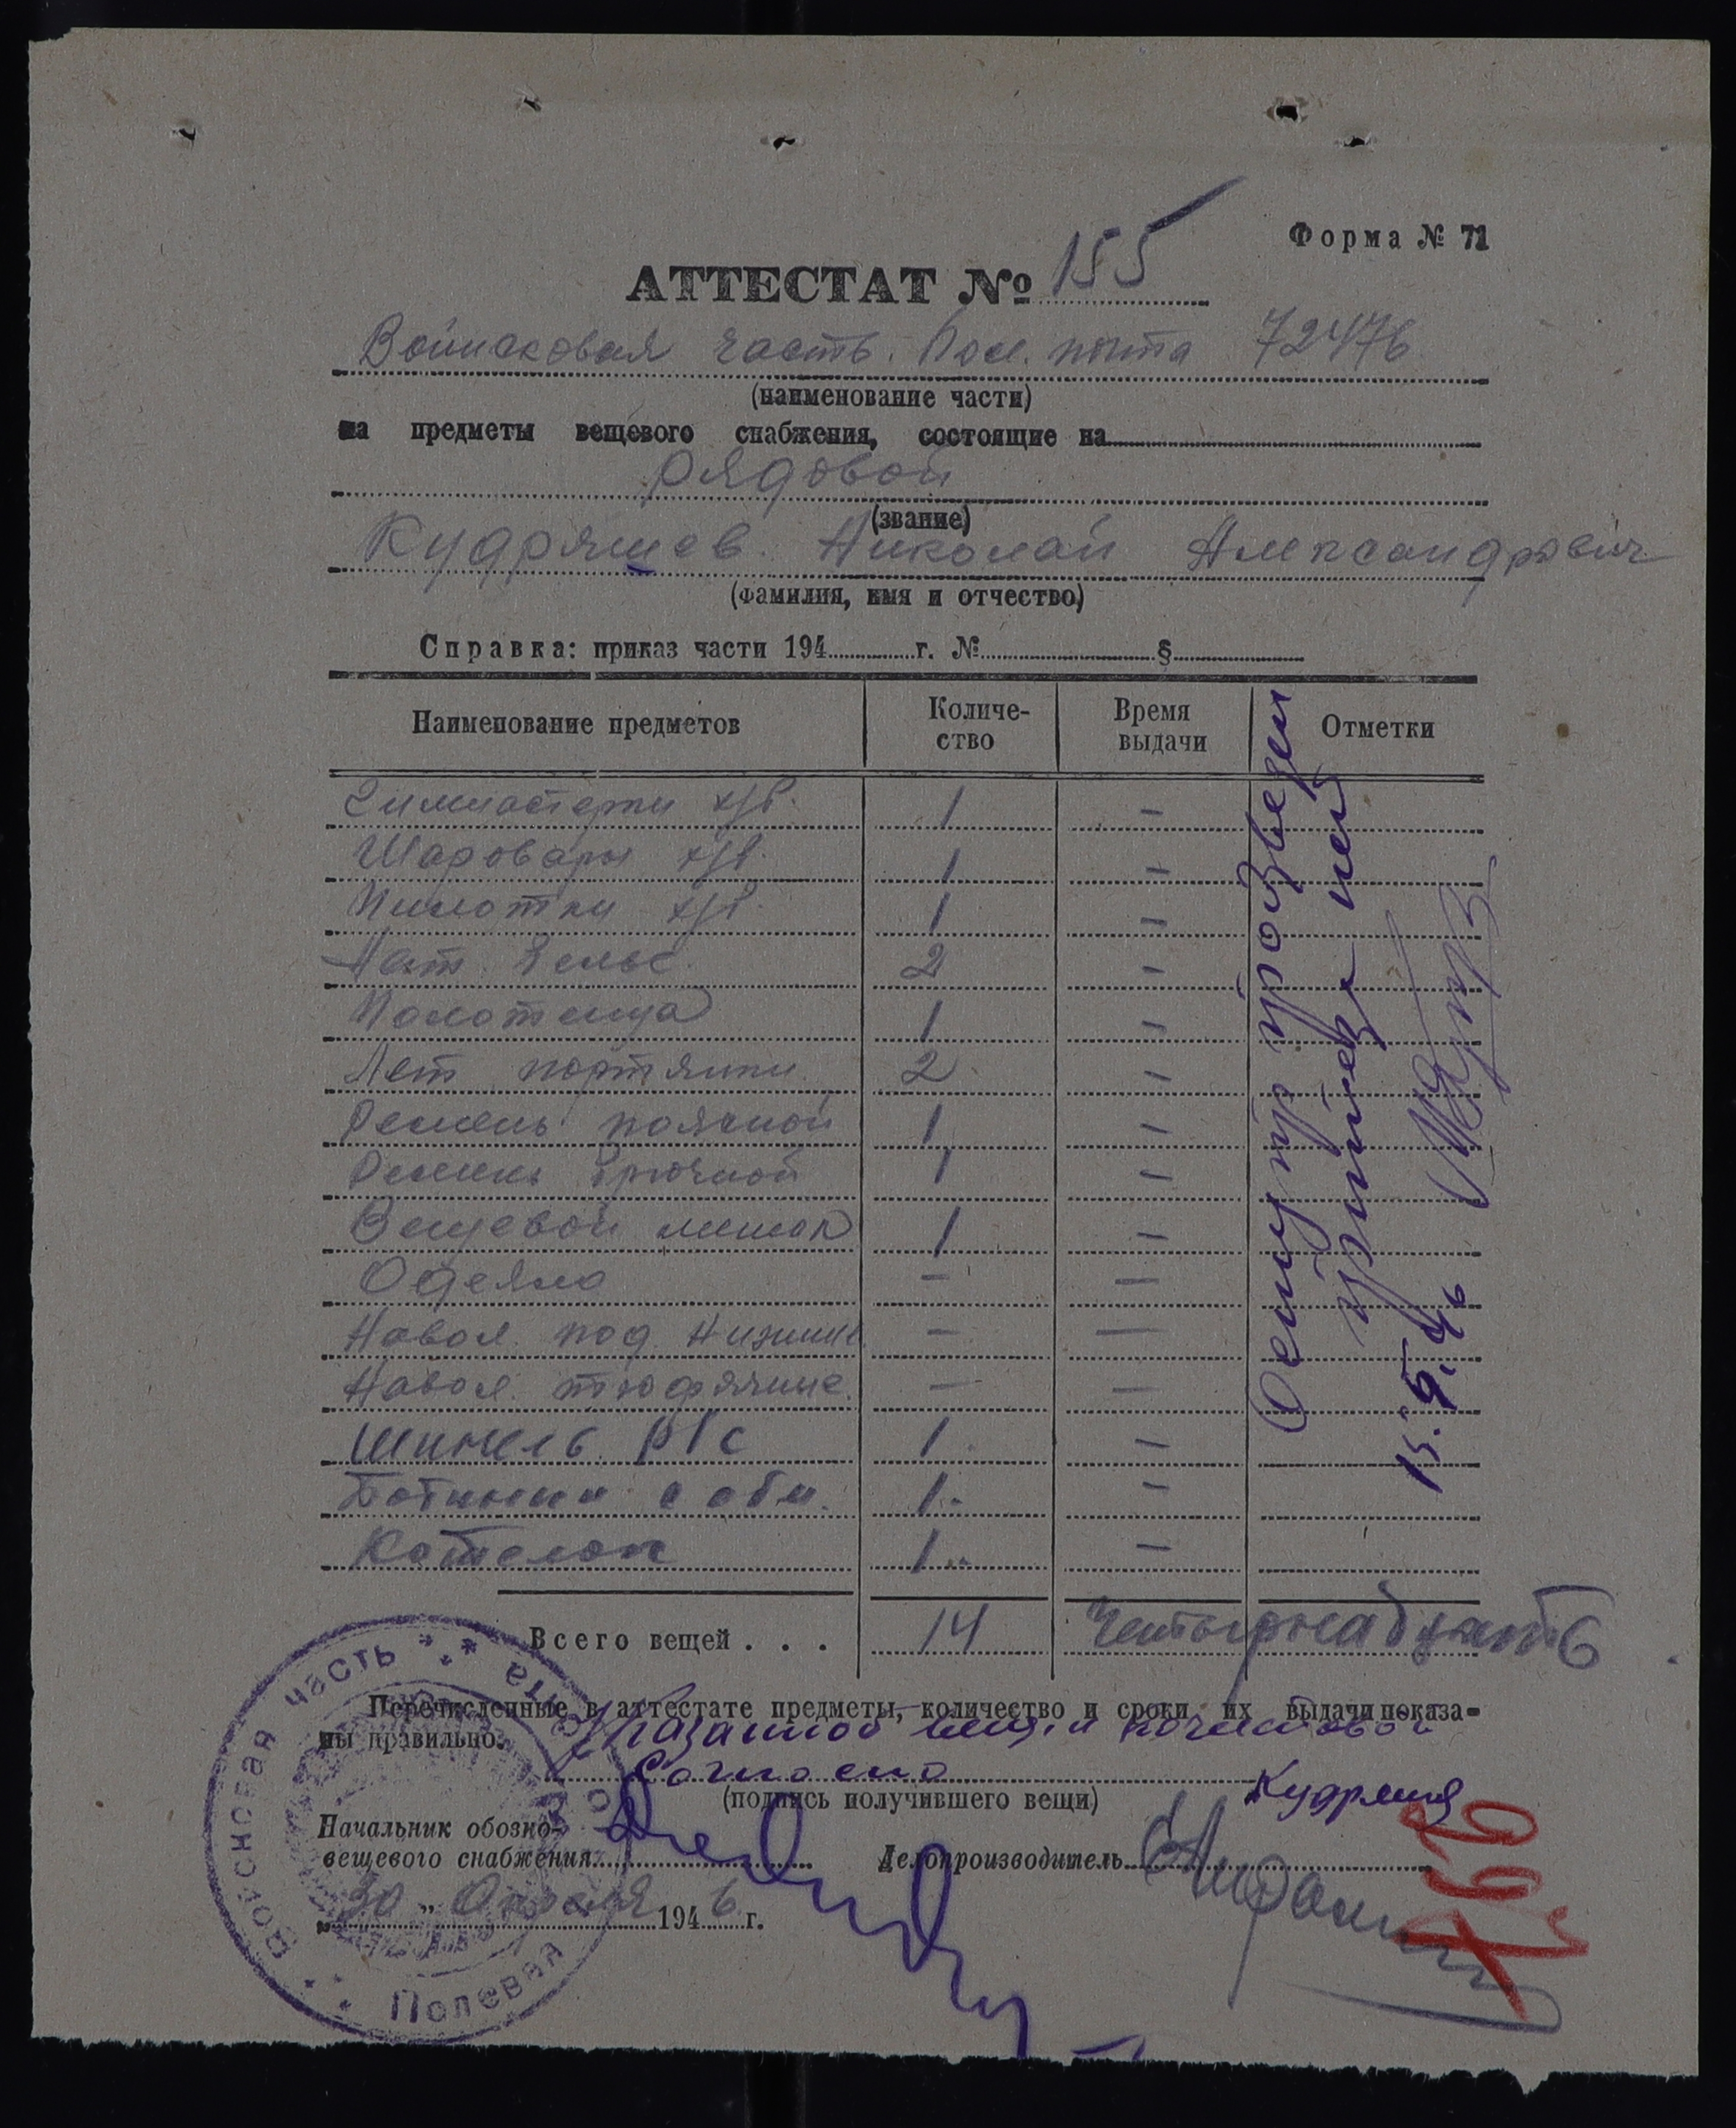 Форма № 71
АТТЕСТАТ № 155
Войисковая часть. Пол. почта 72476
(наименование части)
на предметы вещевого снабжения, состоящие на
рядовой
(звание)
Кудряшев Николай Александрович
(фамилия, имя и отчество)
Справка: приказ части 194 г. № §
Наименование предметов Количество Время выдачи Отметки
Гимнастерки х/б. 1 –
Шаровары х/б. 1 –
Пилотки х/б. 1 –
Нат. белье. 2 –
Полотенца 1 –
Лет портянки 2 –
Ремень поясной 1 –
Ремень брючной 1 –
Вещевой мешок 1 –
Одеяло – –
Навол. под. нижние – –
Навол. тюфячные. – –
Шинель р/с 1 –
Ботинки с обм. 1 –
Котелок 1 –
Осмотр произведен
15.5.46
Всего вещей . . . 14 Четырнадцать
Перечисленные в аттестате предметы, количество и сроки их выдачи показа-
ны правильно.
(подпись получившего вещи)
Начальник обозно-
вещевого снабжения
Делопроизводитель
„30" Апреля 1946 г.
Войсковая часть Полевая почта